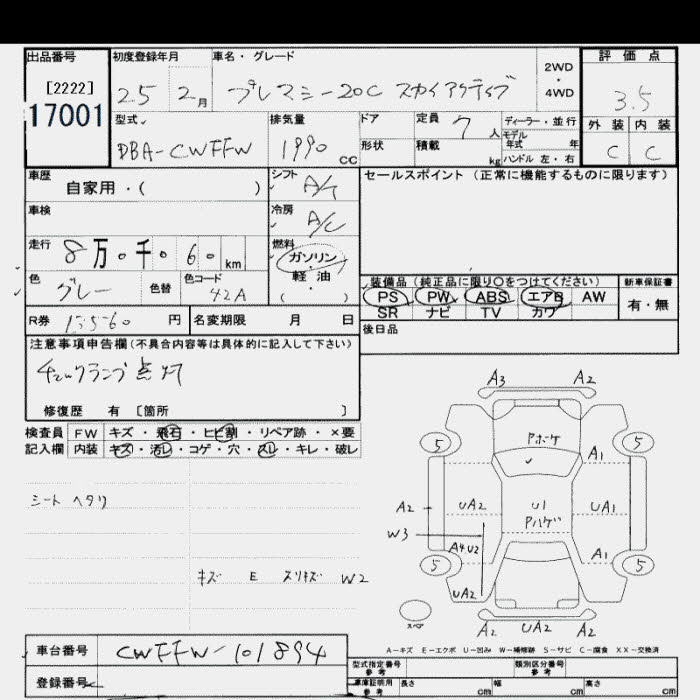 出品番号 初度登録年月 車名・グレード 2WD・4WD 評価点
[2222] 25 2月 プレマシー20C スカイアクティブ 3.5
17001 型式 排気量 ドア 定員 7人 ディーラー・並行 外装 内装
DBA-CWFFW 1990cc 形状 積載 kg モデル年式 年 C C
ハンドル 左・右
車歴 自家用・( ) シフト A/T セールスポイント(正常に機能するものに限ります)
車検 冷房 A/C
走行 8万0千060km 燃料 ガソリン・軽油 ( )
色 グレー 色替 色コード 42A 装備品(純正品に限り○をつけてください) 新車保証書
PS PW ABS エアB AW 有・無
SR ナビ TV カワ
R券 13560円 名変期限 月 日 後日品
注意事項申告欄(不具合内容等は具体的に記入して下さい)
チェックランプ点灯
修復歴 有 [箇所 ]
検査員 FW キズ・飛石・ヒビ割・リペア跡・×要
記入欄 内装 キズ・汚レ・コゲ・穴・スレ・キレ・破レ
シート ヘタリ
キズ E スリキズ W2
A3 A2
5 Pボケ 5
A1
A2 UA2 U1 UA1
Pハゲ
W3 A4U2 A1
5 5
スペア A2 UA2 A2
A-キズ E-エクボ U-凹み W-補修跡 S-サビ C-腐食 XX-交換済
車台番号 CWFFW-101894 型式指定番号 参考 類別区分番号 参考
登録番号 車庫証明用 参考 長さ cm 幅 cm 高さ cm